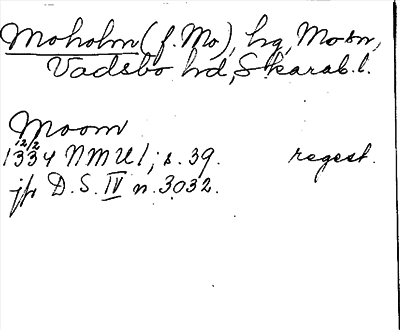 Moholm (f. Mo), hg, Mo sn,
Vadsbo hd, Skarab. l.
Moom
12/2
1334 NMU 1; s. 39. regest.
jfr D.S. IV n. 3032.